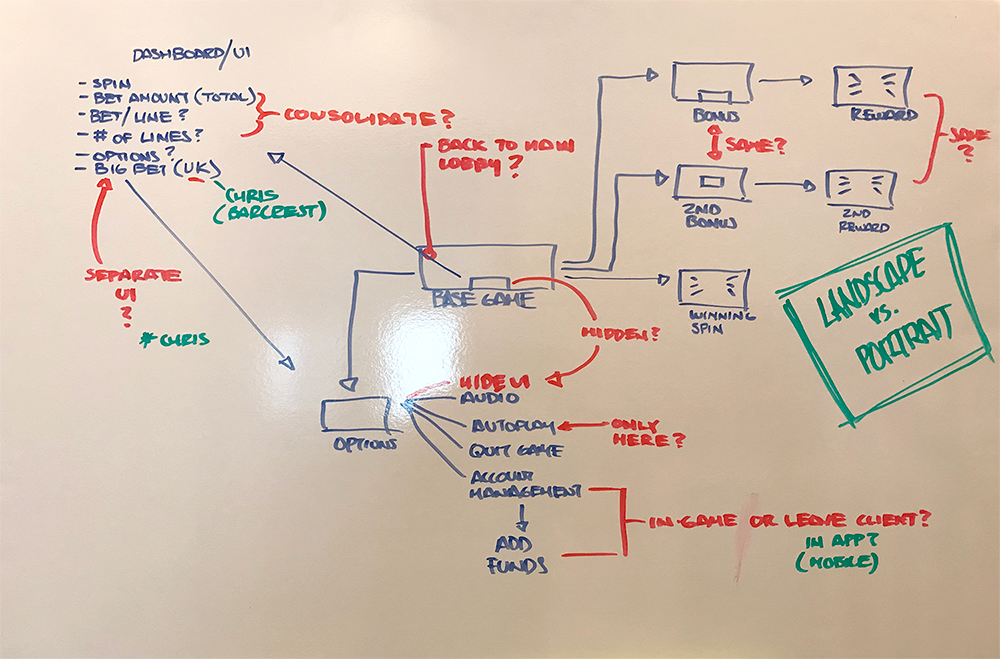 DASHBOARD/UI
- SPIN
- BET AMOUNT (TOTAL)
- BET/LINE?
- # OF LINES?
- OPTIONS?
- BIG BET (UK)
CONSOLIDATE?
CHRIS
(BARCREST)
SEPARATE
UI
?
# CHRIS
BACK TO MAIN
LOBBY?
BASE GAME
BONUS
REWARD
SAME?
SAME
?
2ND
BONUS
2ND
REWARD
WINNING
SPIN
LANDSCAPE
VS.
PORTRAIT
HIDDEN?
OPTIONS
HIDE UI
AUDIO
AUTOPLAY
ONLY
HERE?
QUIT GAME
ACCOUNT
MANAGEMENT
ADD
FUNDS
IN-GAME OR LEAVE CLIENT?
IN APP?
(MOBILE)